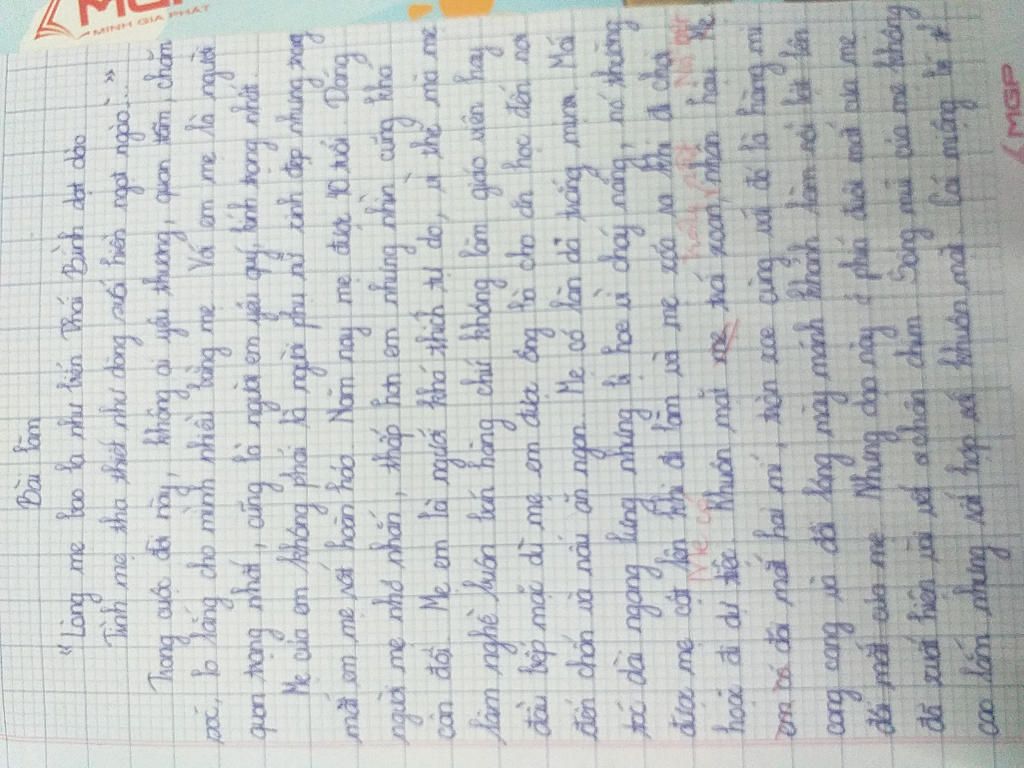 MGP
MINH GIA PHÁT
Bài làm
"Lòng mẹ bao la như biển Thái Bình dạt dào
Tình mẹ tha thiết như dòng suối hiền ngọt ngào..."
Trong cuộc đời này, không ai yêu thương, quan tâm, chăm
sóc, lo lắng cho mình nhiều bằng mẹ. Với em mẹ là người
quan trọng nhất, cũng là người em yêu quý, kính trọng nhất.
Mẹ của em không phải là người phụ nữ xinh đẹp nhưng trong
mắt em mẹ rất hoàn hảo. Năm nay mẹ được 40 tuổi. Dáng
người mẹ nhỏ nhắn, thấp hơn em nhưng nhìn cũng khá
cân đối. Mẹ em là người khá thích tự do, vì thế mà mẹ
làm nghề buôn bán hàng chứ không làm giáo viên hay
đầu bếp mặc dù mẹ em được ông bà cho ăn học đến nơi
đến chốn và nấu ăn ngon. Mẹ có làn da trắng mịn. Mái
tóc dài ngang lưng nhưng bị hoe vì cháy nắng, nó thường
được mẹ cột lên khi đi làm và mẹ xóa ra khi đi chơi
hoặc đi dự tiệc. Khuôn mặt mẹ trái xoan, nhân hậu. Mẹ
Mẹ có
em có đôi mắt hai mí, tròn xoe cùng với đó là hàng mi
cong cong và đôi lông mày mảnh khảnh làm nổi bật lên
đôi mắt của mẹ. Nhưng dạo này ở phía dưới mắt của mẹ
đã xuất hiện vài vết chân chim. Sóng mũi của mẹ không
cao lắm nhưng rất hợp với khuôn mặt. Cái miệng
MGP